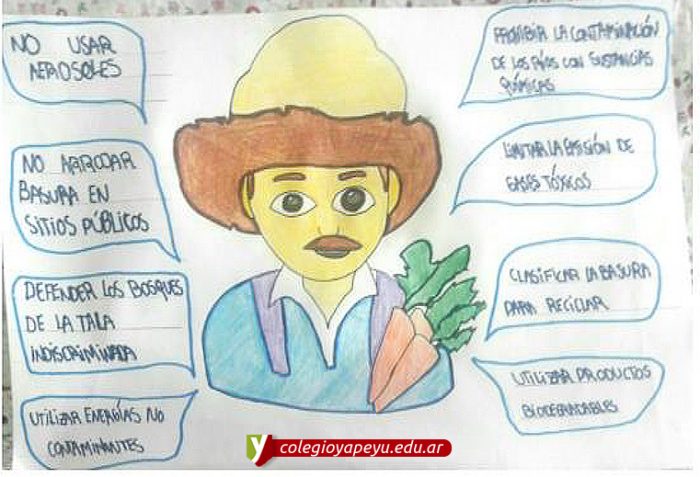 NO USAR
AEROSOLES
NO ARROJAR
BASURA EN
SITIOS PÚBLICOS
DEFENDER LOS BOSQUES
DE LA TALA
INDISCRIMINADA
UTILIZAR ENERGÍAS NO
CONTAMINANTES
PROHIBIR LA CONTAMINACIÓN
DE LOS RÍOS CON SUSTANCIAS
QUÍMICAS
LIMITAR LA EMISIÓN DE
GASES TÓXICOS
CLASIFICAR LA BASURA
PARA RECICLAR
UTILIZAR PRODUCTOS
BIODEGRADABLES
y colegioyapeyu.edu.ar